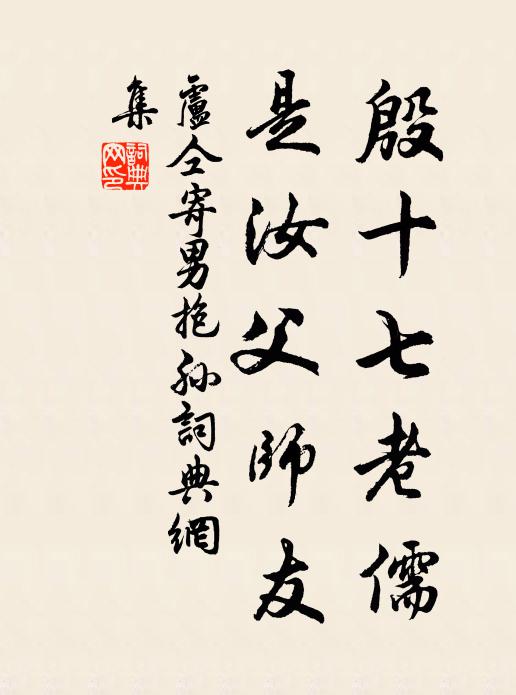 殷十七老儒
是汝父師友
盧仝寄男抱孫詞典網
集
詞典網印